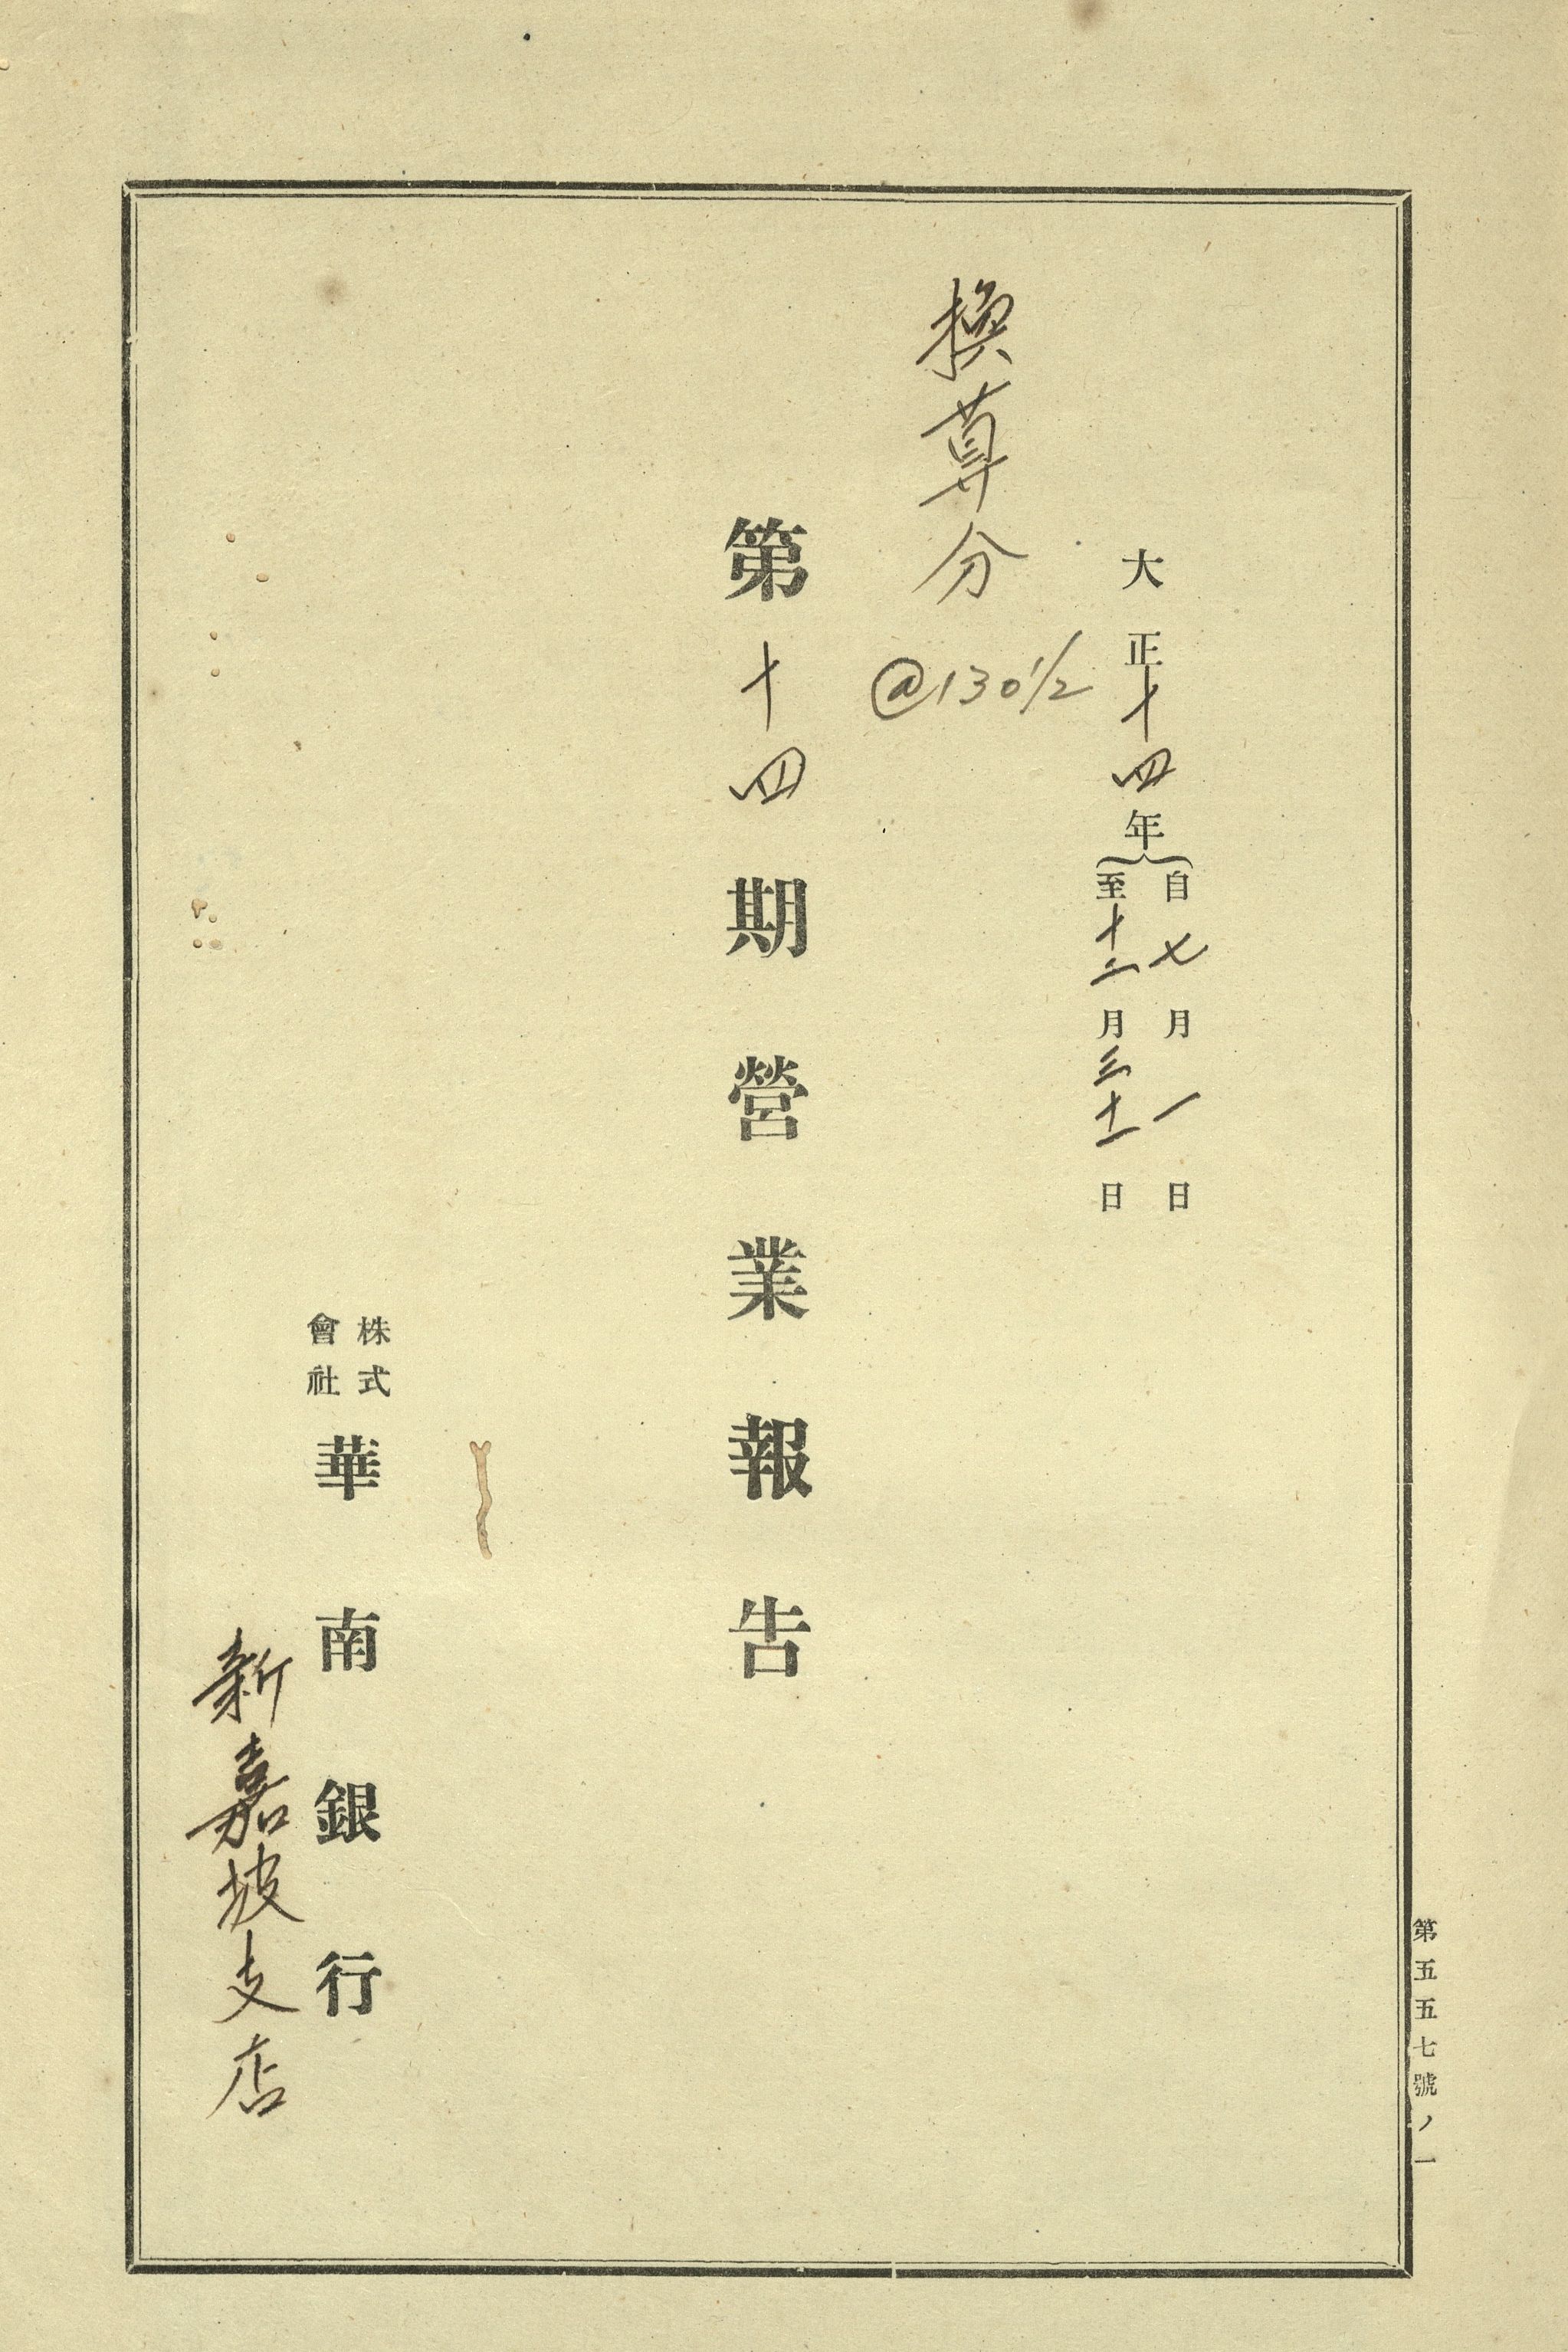 大正十四年
自七月一日
至十二月三十一日
換算分
@130½
第十四期營業報告
株式
會社
華南銀行
新嘉坡支店
第五五七號ノ一